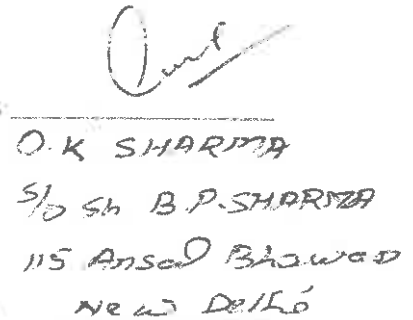 O.K SHARMA
S/o Sh B.P. SHARMA
115 Ansal Bhawan
New Delhi